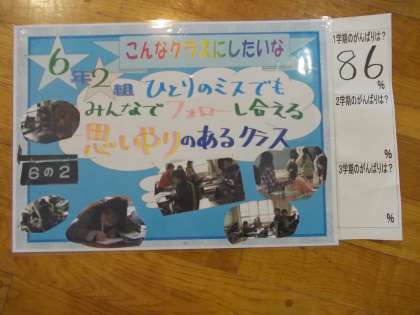 こんなクラスにしたいな
6年2組
ひとりのミスでも
みんなでフォローし合える
思いやりのあるクラス
6の2
1学期のがんばりは?
86
%
2学期のがんばりは?
%
3学期のがんばりは?
%